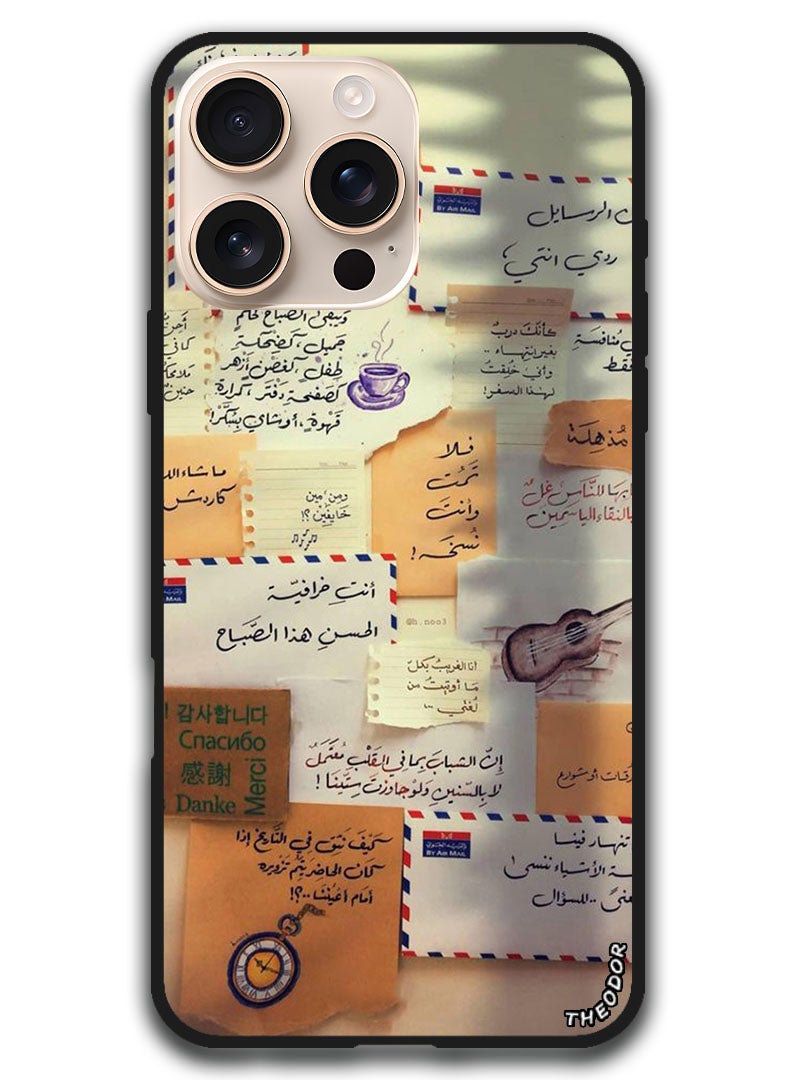 BY AIR MAIL
ن الرسايل
ردي انتي،
ويبقى الصباح كحلم
جميل، كضحكة
طفل، كغصن أزهر
كصفحة دفتر، ككرارة
قهوة، أوشاي بسكر!
كأنك دربٌ
بغير انتهاء ..
وأني خُلقت
لهذا السفر!
مُنافسة
فقط
مُذهلة
فلا
تَمُت
وأنتَ
نُسخة!
ما شاءالل
كاردش
ومن مين
خايفين ؟!
بها للنّاس غلٌ
بالنقاء الياسمين
أنتِ خرافيّة
الحسنِ هذا الصَّباح
@h.noo3
أنا الغريبُ بكلّ
مَا أوتيتُ من
لُغتي ...
감사합니다
Спасибо
感謝
Danke
Merci
إنّ الشبابَ بِما في القَلْبِ مُعتَمَلٌ
لا بِالسّنينِ وَلوْ جاوزتَ سِتّينَا !
رقات أو شوارع
كيْفَ نَثِق في التَّاريخ إذا
كان الحاضر يتمُّ تَزْويره
أمام أعيُننا ..؟!
تنهار فينا
ة الأشياء ننسى
عنىً .. للسؤال
BY AIR MAIL
THEODOR